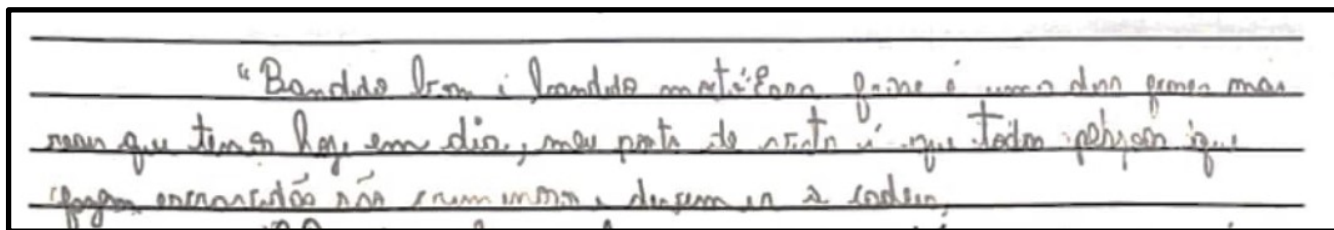 "Bandido bom é bandido morto" Essa frase é uma das frases mais
reais que temos hoje em dia, meu ponto de vista é que todas pessoas que
fazem são criminosos e devem ir a cadeia